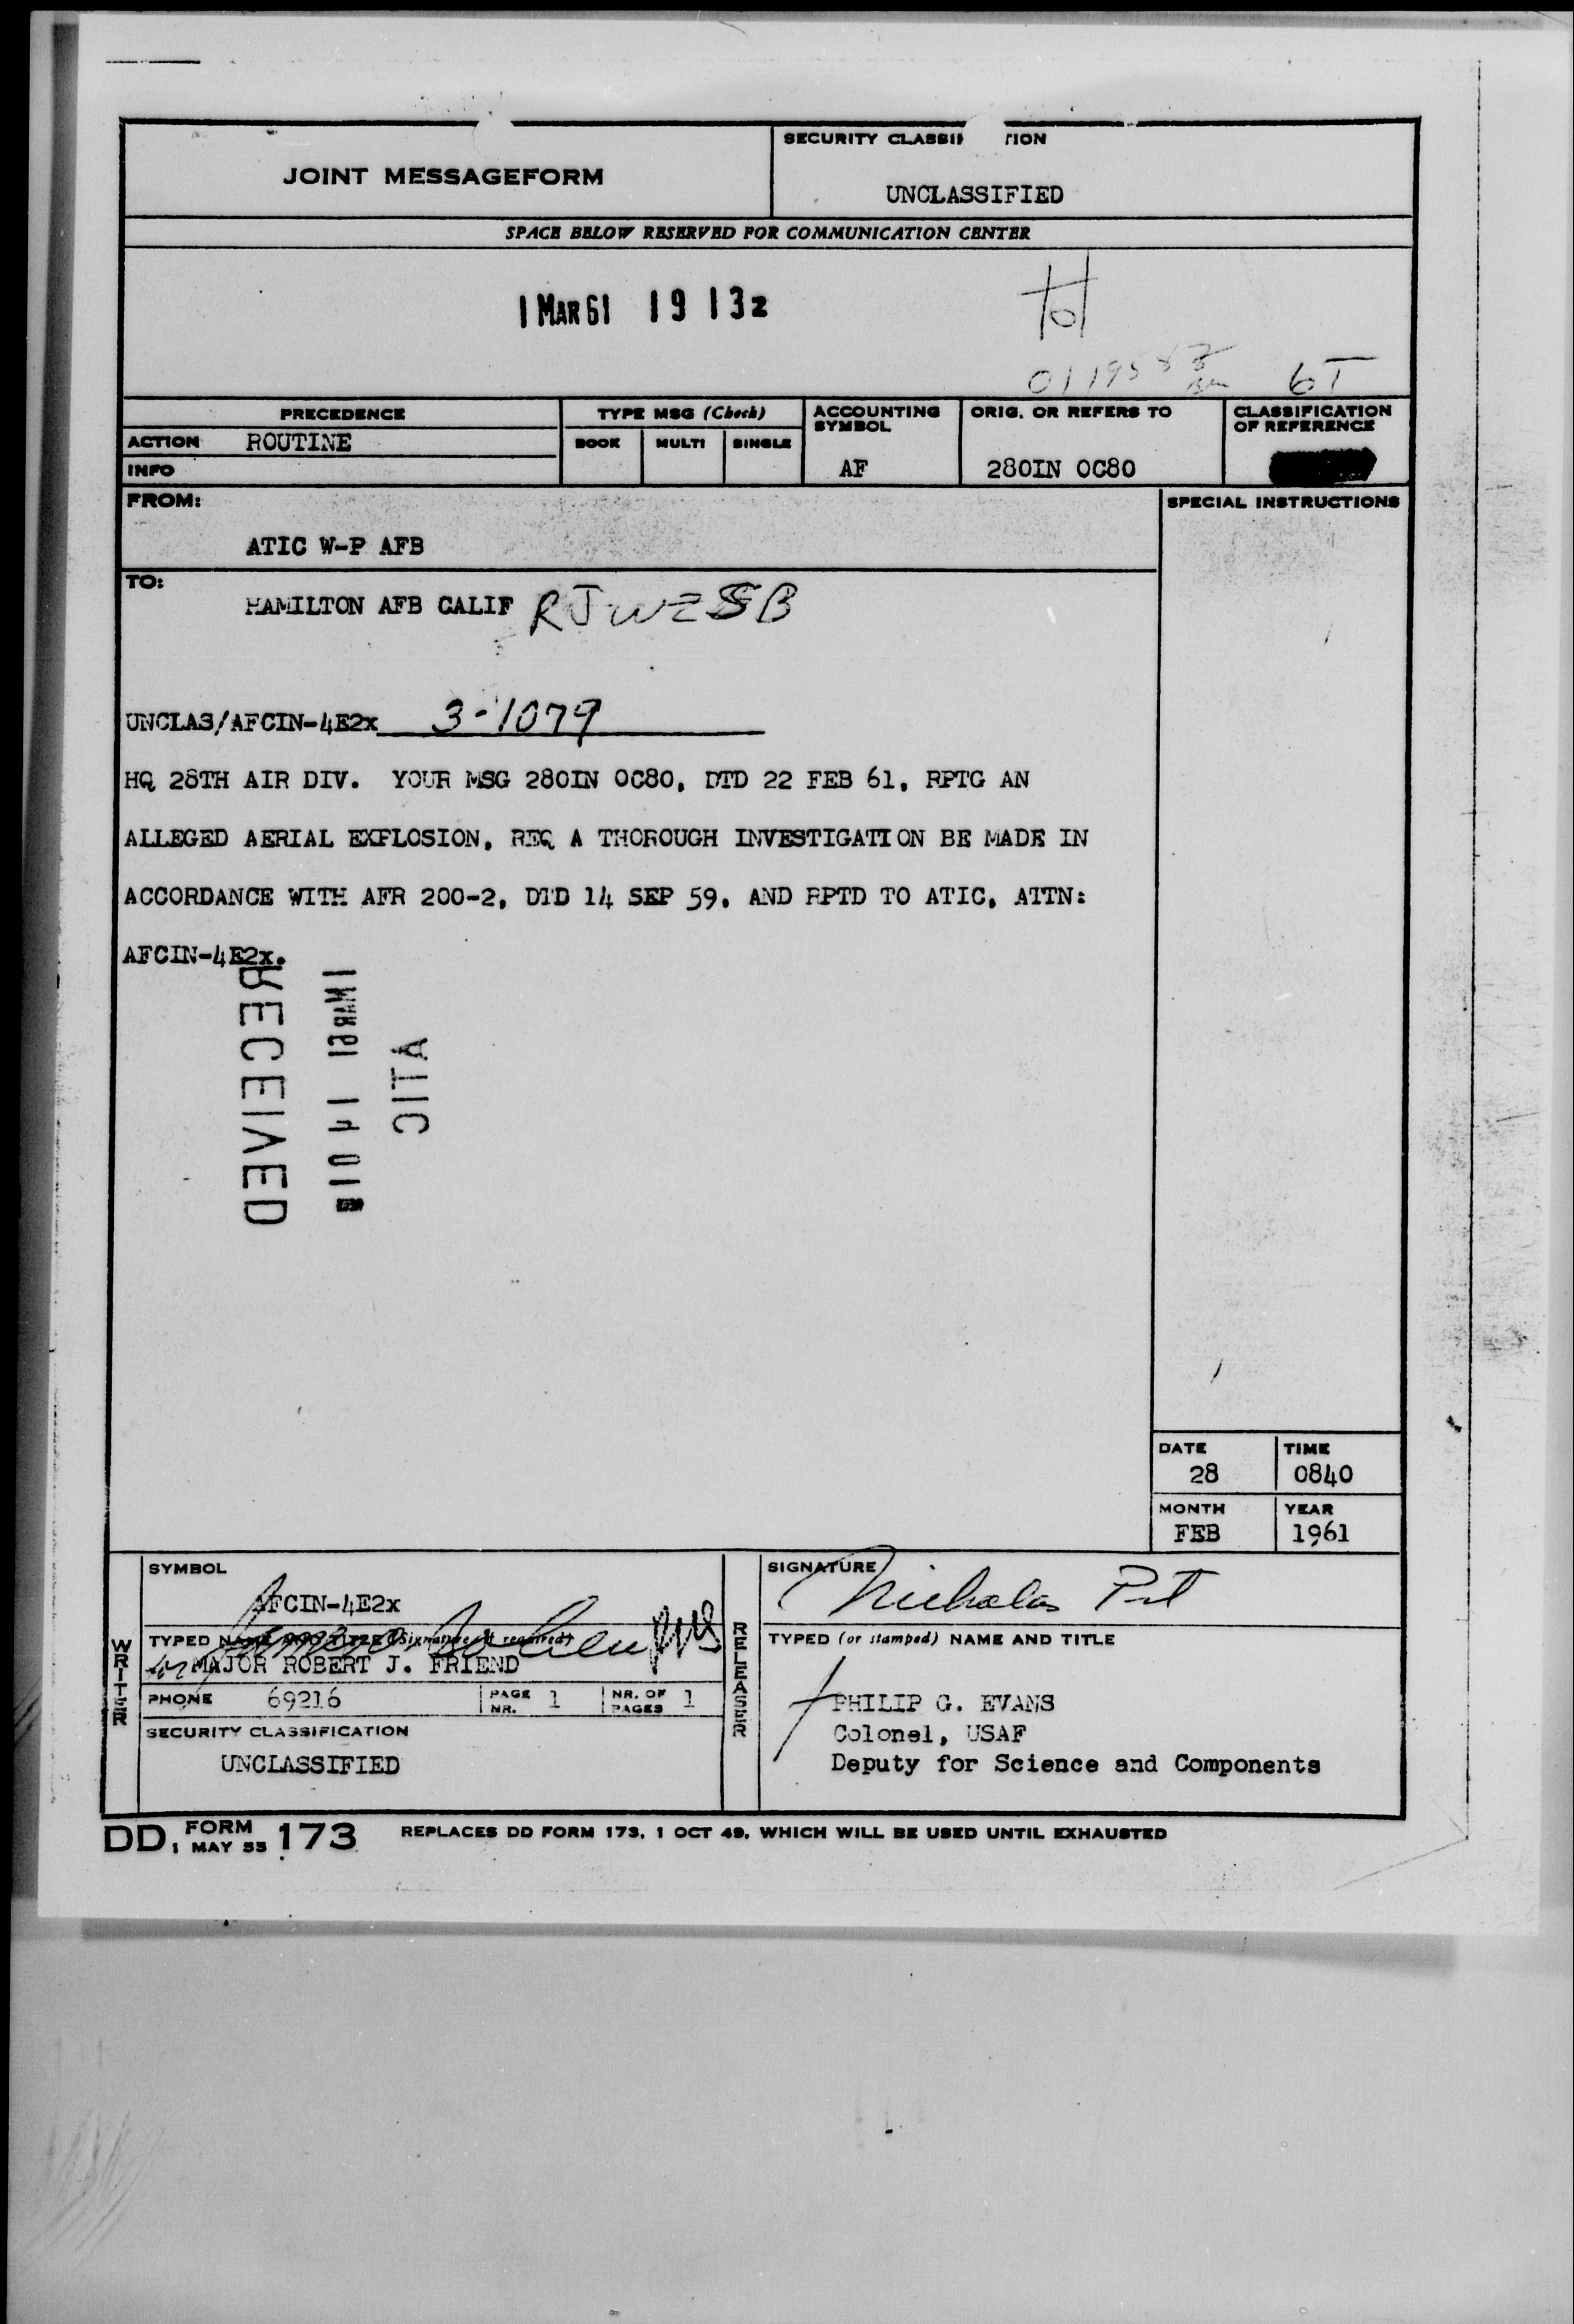 JOINT MESSAGEFORM
SECURITY CLASSIF TION
UNCLASSIFIED
SPACE BELOW RESERVED FOR COMMUNICATION CENTER
1 MAR 61 19 13z
6T
PRECEDENCE
TYPE MSG (Check)
ACCOUNTING SYMBOL
ORIG. OR REFERS TO
CLASSIFICATION OF REFERENCE
ACTION ROUTINE
BOOK MULTI SINGLE
INFO
AF
280IN 0C80
FROM:
SPECIAL INSTRUCTIONS
ATIC W-P AFB
TO:
HAMILTON AFB CALIF RJWZSB
UNCLAS/AFCIN-4E2x 3-1079
HQ 28TH AIR DIV. YOUR MSG 280IN 0C80, DTD 22 FEB 61, RPTG AN
ALLEGED AERIAL EXPLOSION, REQ A THOROUGH INVESTIGATION BE MADE IN
ACCORDANCE WITH AFR 200-2, DTD 14 SEP 59, AND RPTD TO ATIC, ATTN:
AFCIN-4E2x.
ATIC
1 MAR 61 14 01
RECEIVED
DATE
28
TIME
0840
MONTH
FEB
YEAR
1961
WRITER
SYMBOL
AFCIN-4E2x
TYPED NAME AND TITLE (Signature, if required)
MAJOR ROBERT J. FRIEND
PHONE 69216
PAGE NR. 1
NR. OF PAGES 1
SECURITY CLASSIFICATION
UNCLASSIFIED
RELEASER
SIGNATURE
Nicholas Post
TYPED (or stamped) NAME AND TITLE
PHILIP G. EVANS
Colonel, USAF
Deputy for Science and Components
DD FORM 1 MAY 55 173 REPLACES DD FORM 173, 1 OCT 49, WHICH WILL BE USED UNTIL EXHAUSTED